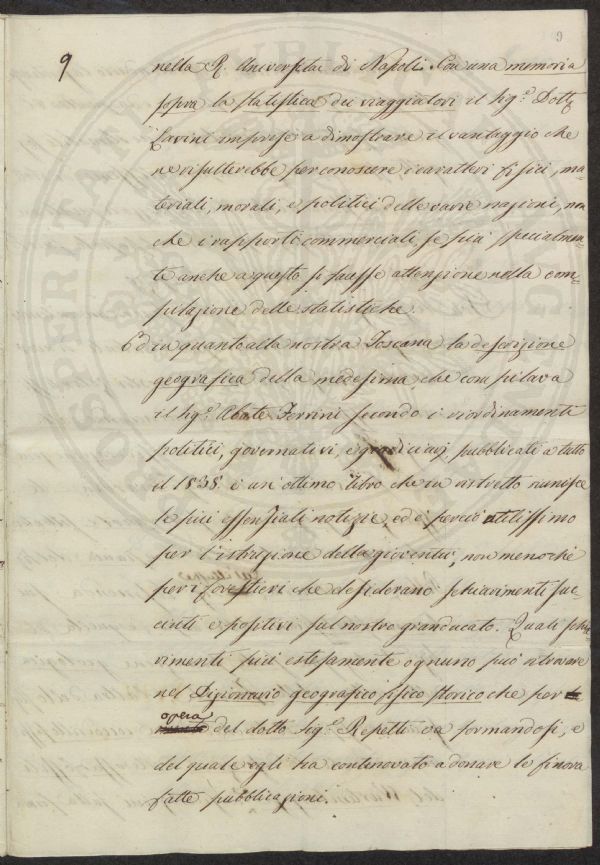 9
9
nella R. Università di Napoli. Con una memoria
sopra la statistica dei viaggiatori il Sig.e Dott.
Cavini imprese a dimostrare il vantaggio che
ne risulterebbe per conoscere i caratteri fisici, ma=
teriali, morali, e politici delle varie nazioni, non
che i rapporti commerciali, se più specialmen=
te anche a questo si facesse attenzione nella com=
pilazione delle statistiche.
6° di in quanto alla nostra Toscana la descrizione
geografica della medesima che compilava
il Sig.e Abate Ferrini secondo i riordinamenti
politici, governativi, e giudiciarj pubblicati a tutto
il 1838 è un' ottimo libro che in ristretto riunisce
le più essenziali notizie, ed è perciò utilissimo
per l'istruzione della gioventù, non meno chè
per i forestieri che desiderano schiarimenti suc=
cinti e positivi sul nostro granducato. Quali schia=
rimenti più estesamente ognuno può ritrovare
nel Dizionario geografico fisico storico che per
opera
del dotto Sig.e Repetti va formandosi, e
del quale egli ha continovato a donare le finora
fatte pubblicazioni.